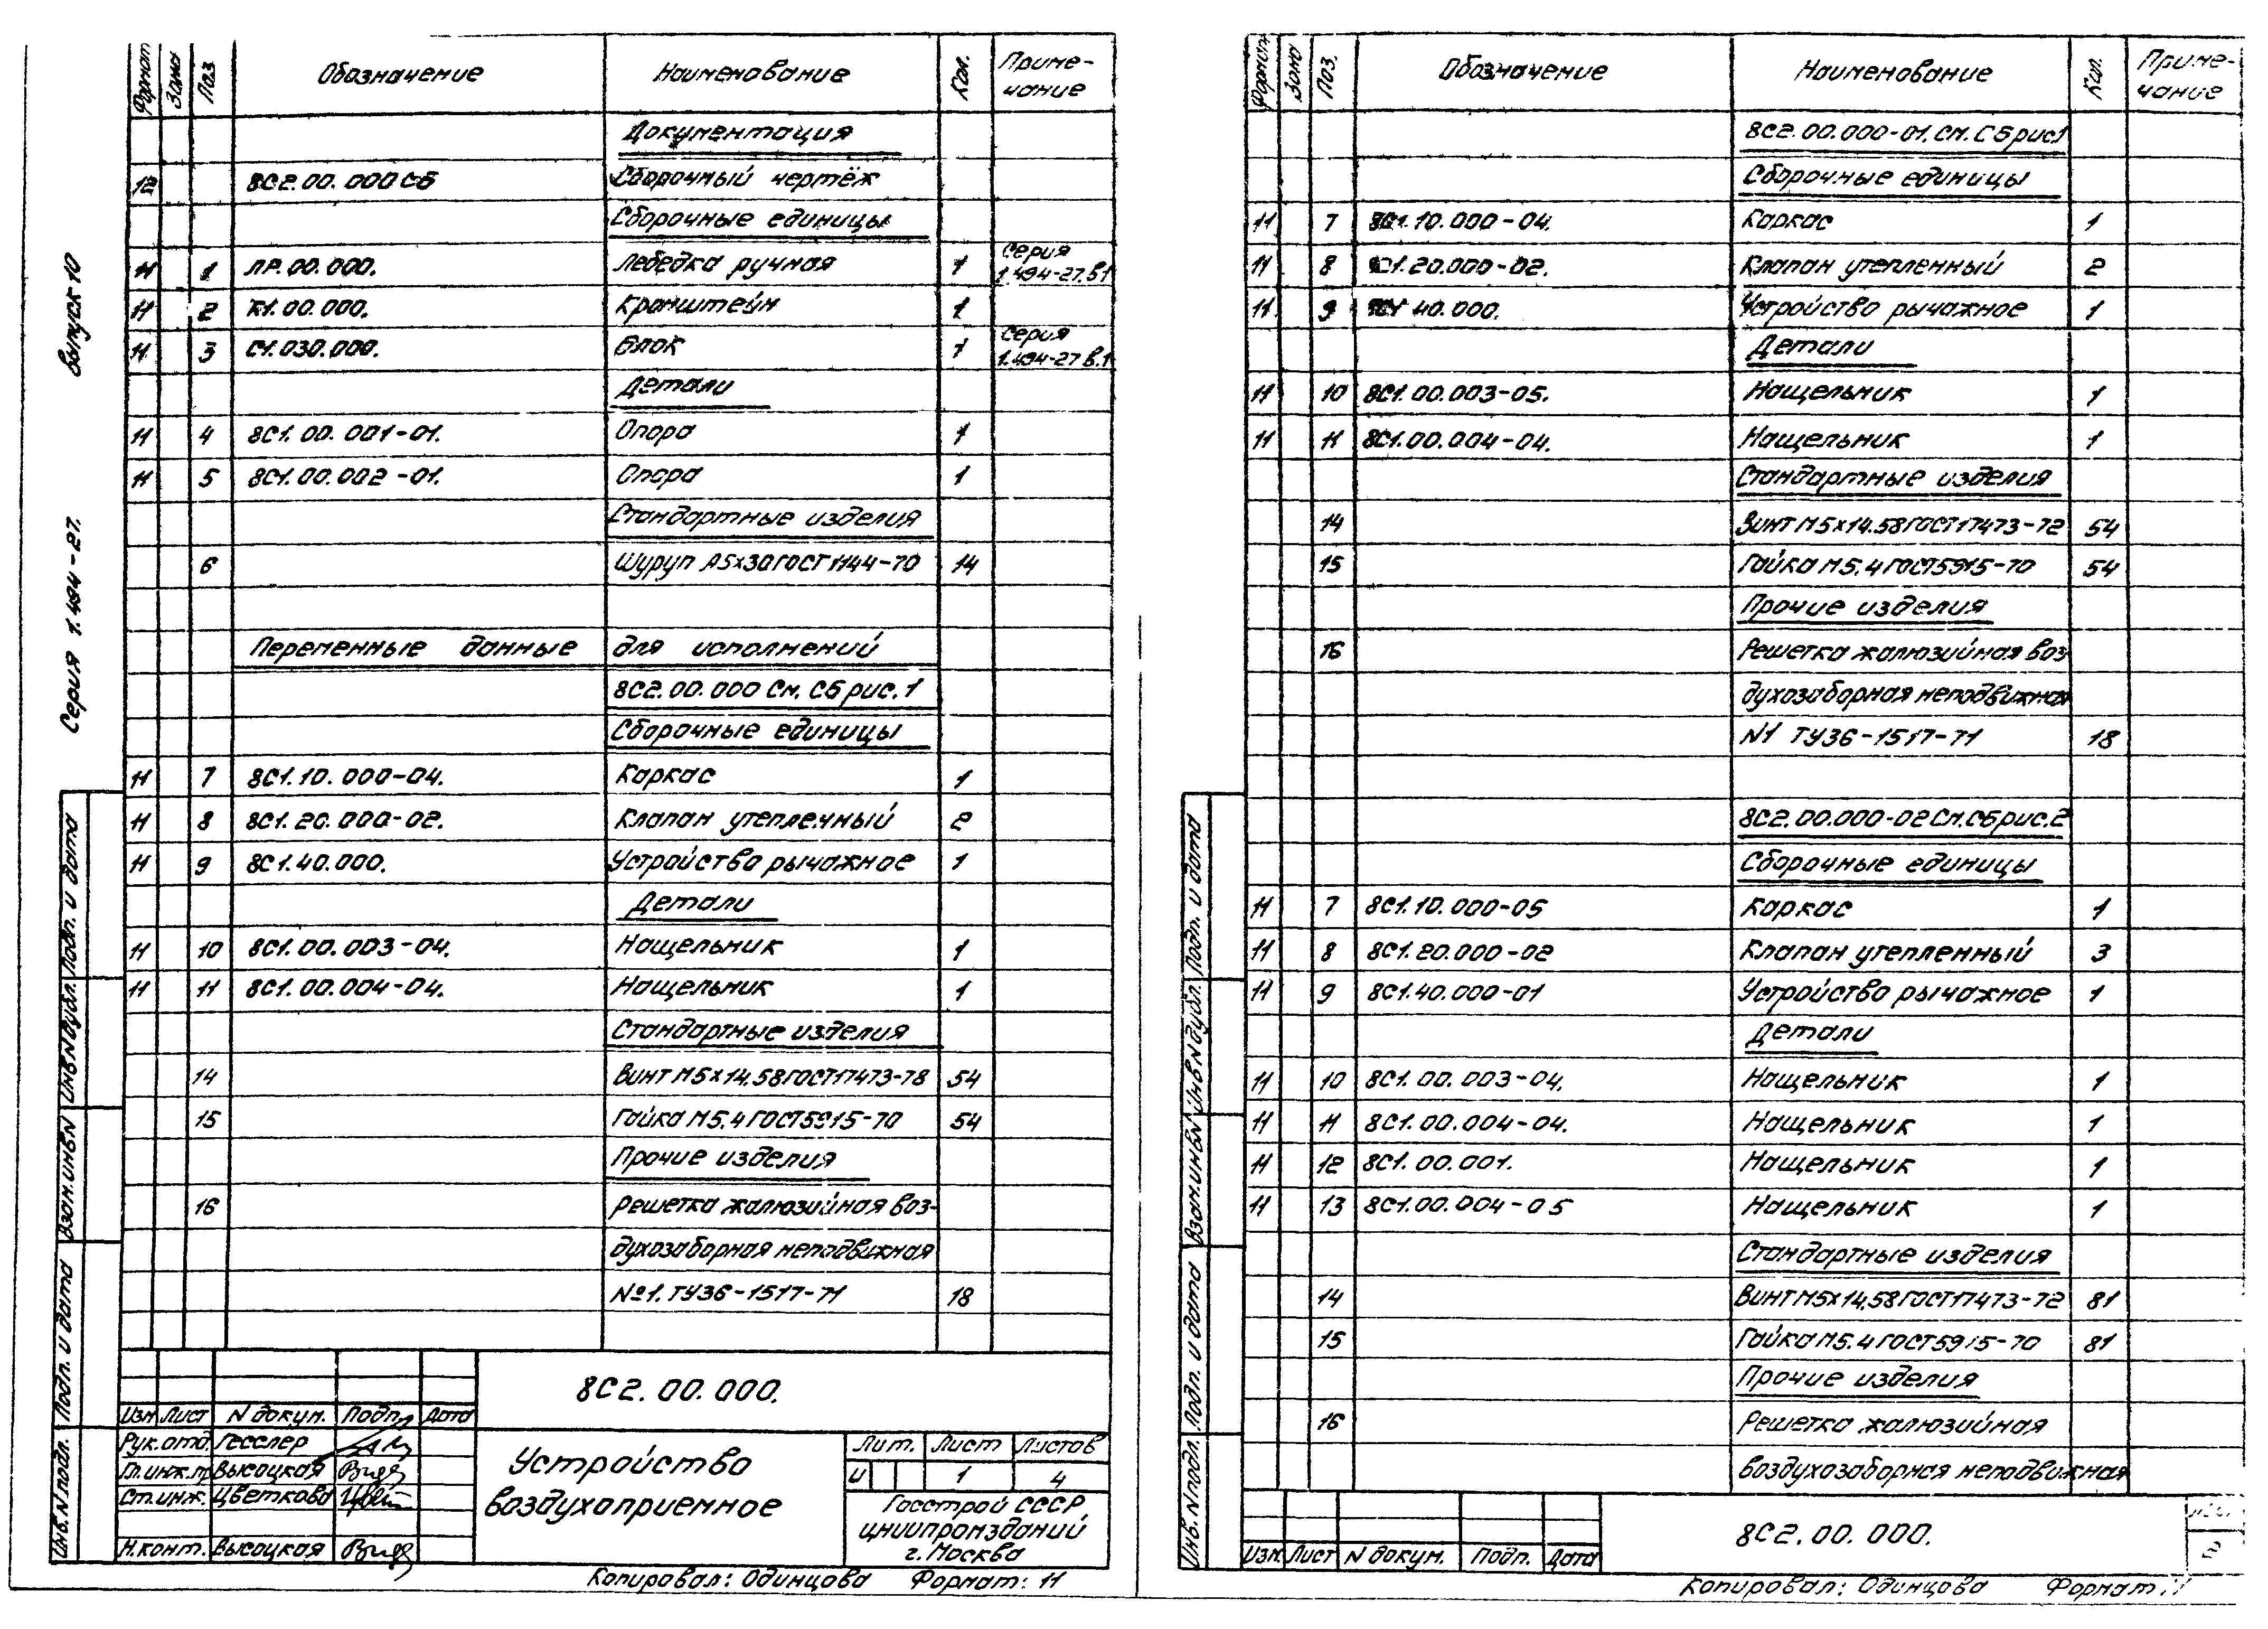 Выпуск 10
Серия 1.494-27.
Формат Зона Поз. Обозначение Наименование Кол. Приме-
чание
Документация
12 8С2.00.000СБ Сборочный чертёж
Сборочные единицы
11 1 ЛР.00.000. Лебедка ручная 1 Серия
1.494-27.В.1
11 2 К1.00.000. Кронштейн 1
11 3 С1.030.000. Блок 1 Серия
1.494-27 В.1
Детали
11 4 8С1.00.001-01. Опора 1
11 5 8С1.00.002-01. Опора 1
Стандартные изделия
6 Шуруп А5х30 ГОСТ 1144-70 14
Переменные данные для исполнений
8С2.00.000 См. СБ рис.1
Сборочные единицы
11 7 8С1.10.000-04. Каркас 1
11 8 8С1.20.000-02. Клапан утепленный 2
11 9 8С1.40.000. Устройство рычажное 1
Детали
11 10 8С1.00.003-04. Нащельник 1
11 11 8С1.00.004-04. Нащельник 1
Стандартные изделия
14 Винт М5х14.58 ГОСТ17473-78 54
15 Гайка М5.4 ГОСТ5915-70 54
Прочие изделия
16 Решетка жалюзийная воз-
духозаборная неподвижная
№1. ТУ36-1517-71 18
8С2.00.000.
Изм Лист N докум. Подп. Дата
Рук.отд. Гесслер
Гл.инж.пр Высоцкая
Ст.инж. Цветкова
Н.конт. Высоцкая
Устройство
воздухоприемное
Лит. Лист Листов
И 1 4
Госстрой СССР
ЦНИИпромзданий
г. Москва
Инв.N подл. Подп. и дата Взам.инвN Инв.Nдубл. Подп. и дата
Копировал: Одинцова Формат: 11
Формат Зона Поз. Обозначение Наименование Кол. Приме-
чание
8С2.00.000-01. См. СБ рис1
Сборочные единицы
11 7 8С1.10.000-04. Каркас 1
11 8 8С1.20.000-02. Клапан утепленный 2
11 9 8С1 40.000. Устройство рычажное 1
Детали
11 10 8С1.00.003-05. Нащельник 1
11 11 8С1.00.004-04. Нащельник 1
Стандартные изделия
14 Винт М5х14.58 ГОСТ17473-72 54
15 Гайка М5.4 ГОСТ5915-70 54
Прочие изделия
16 Решетка жалюзийная воз-
духозаборная неподвижная
N1 ТУ36-1517-71 18
8С2.00.000-02 См.СБ рис.2
Сборочные единицы
11 7 8С1.10.000-05 Каркас 1
11 8 8С1.20.000-02 Клапан утепленный 3
11 9 8С1.40.000-01 Устройство рычажное 1
Детали
11 10 8С1.00.003-04. Нащельник 1
11 11 8С1.00.004-04. Нащельник 1
11 12 8С1.00.001. Нащельник 1
11 13 8С1.00.004-05 Нащельник 1
Стандартные изделия
14 Винт М5х14,58 ГОСТ17473-72 81
15 Гайка М5.4 ГОСТ5915-70 81
Прочие изделия
16 Решетка жалюзийная
воздухозаборная неподвижная
8С2.00.000.
2
Изм Лист N докум. Подп. Дата
Инв.N подл. Подп. и дата Взам.инвN Инв.Nдубл. Подп. и дата
Копировал: Одинцова Формат